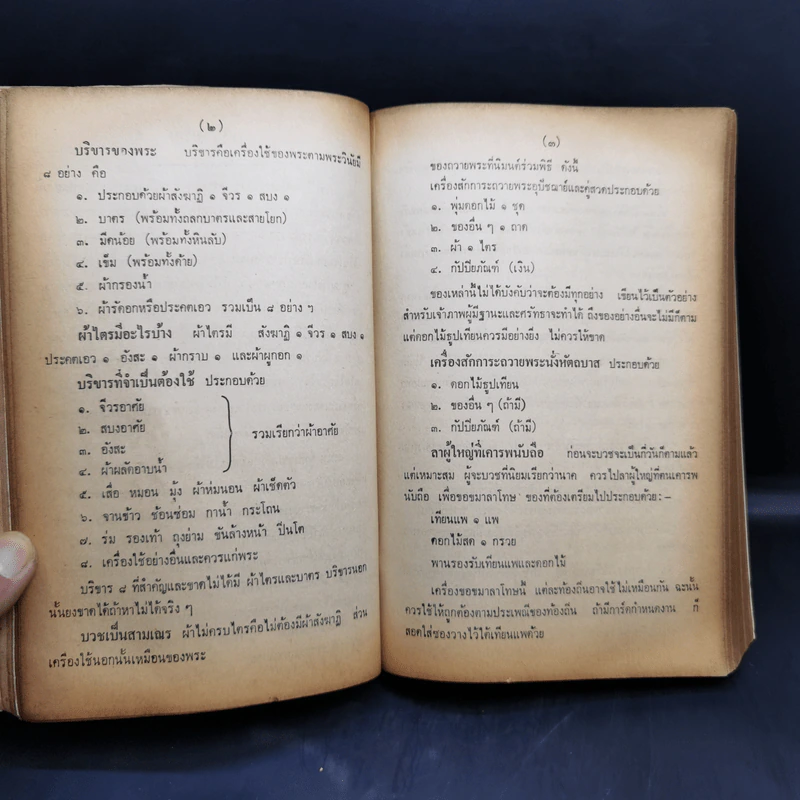 (๒)
บริขารของพระ บริขารคือเครื่องใช้ของพระตามพระวินัยมี
๘ อย่าง คือ
๑. ประกอบด้วยผ้าสังฆาฏิ ๑ จีวร ๑ สบง ๑
๒. บาตร (พร้อมทั้งถลกบาตรและสายโยก)
๓. มีดน้อย (พร้อมทั้งหินลับ)
๔. เข็ม (พร้อมทั้งด้าย)
๕. ผ้ากรองน้ำ
๖. ผ้ารัดอกหรือประคดเอว รวมเป็น ๘ อย่าง ๆ
ผ้าไตรมีอะไรบ้าง ผ้าไตรมี สังฆาฏิ ๑ จีวร ๑ สบง ๑
ประคดเอว ๑ อังสะ ๑ ผ้ากราบ ๑ และผ้าผูกอก ๑
บริขารที่จำเป็นต้องใช้ ประกอบด้วย
๑. จีวรอาศัย
๒. สบงอาศัย
๓. อังสะ
๔. ผ้าผลัดอาบน้ำ
รวมเรียกว่าผ้าอาศัย
๕. เสื่อ หมอน มุ้ง ผ้าห่มนอน ผ้าเช็ดตัว
๖. จานข้าว ช้อนซ่อม กาน้ำ กระโถน
๗. ร่ม รองเท้า ถุงย่าม ขันล้างหน้า ปิ่นโต
๘. เครื่องใช้อย่างอื่นและควรแก่พระ
บริขาร ๘ ที่สำคัญและขาดไม่ได้มี ผ้าไตรและบาตร บริขารนอก
นั้นยงขาดได้ถ้าหาไม่ได้จริง ๆ
บวชเป็นสามเณร ผ้าไม่ครบไตรคือไม่ต้องมีผ้าสังฆาฏิ ส่วน
เครื่องใช้นอกนั้นเหมือนของพระ
(๓)
ของถวายพระที่นิมนต์ร่วมพิธี ดังนี้
เครื่องสักการะถวายพระอุปัชฌาย์และคู่สวดประกอบด้วย
๑. พุ่มดอกไม้ ๑ ชุด
๒. ของอื่น ๆ ๑ ถาด
๓. ผ้า ๑ ไตร
๔. กัปปิยภัณฑ์ (เงิน)
ของเหล่านี้ไม่ได้บังคับว่าจะต้องมีทุกอย่าง เขียนไว้เป็นตัวอย่าง
สำหรับเจ้าภาพผู้มีฐานะและศรัทธาจะทำได้ ถึงของอย่างอื่นจะไม่มีก็ตาม
แต่ดอกไม้ธูปเทียนควรมีอย่างยิ่ง ไม่ควรให้ขาด
เครื่องสักการะถวายพระนั่งหัตถบาส ประกอบด้วย
๑. ดอกไม้ธูปเทียน
๒. ของอื่น ๆ (ถ้ามี)
๓. กัปปิยภัณฑ์ (ถ้ามี)
ลาผู้ใหญ่ที่เคารพนับถือ ก่อนจะบวชจะเป็นกี่วันก็ตามแล้ว
แต่เหมาะสม ผู้จะบวชที่นิยมเรียกว่านาค ควรไปลาผู้ใหญ่ที่ตนเคารพ
นับถือ เพื่อขอขมาลาโทษ ของที่ต้องเตรียมไปประกอบด้วย:-
เทียนแพ ๑ แพ
ดอกไม้สด ๑ กรวย
พานรองรับเทียนแพและดอกไม้
เครื่องขอขมาลาโทษนี้ แต่ละท้องถิ่นอาจใช้ไม่เหมือนกัน ฉะนั้น
ควรใช้ให้ถูกต้องตามประเพณีของท้องถิ่น ถ้ามีการ์ดกำหนดงาน ก็
สอดใส่ซองวางไว้ใต้เทียนแพด้วย